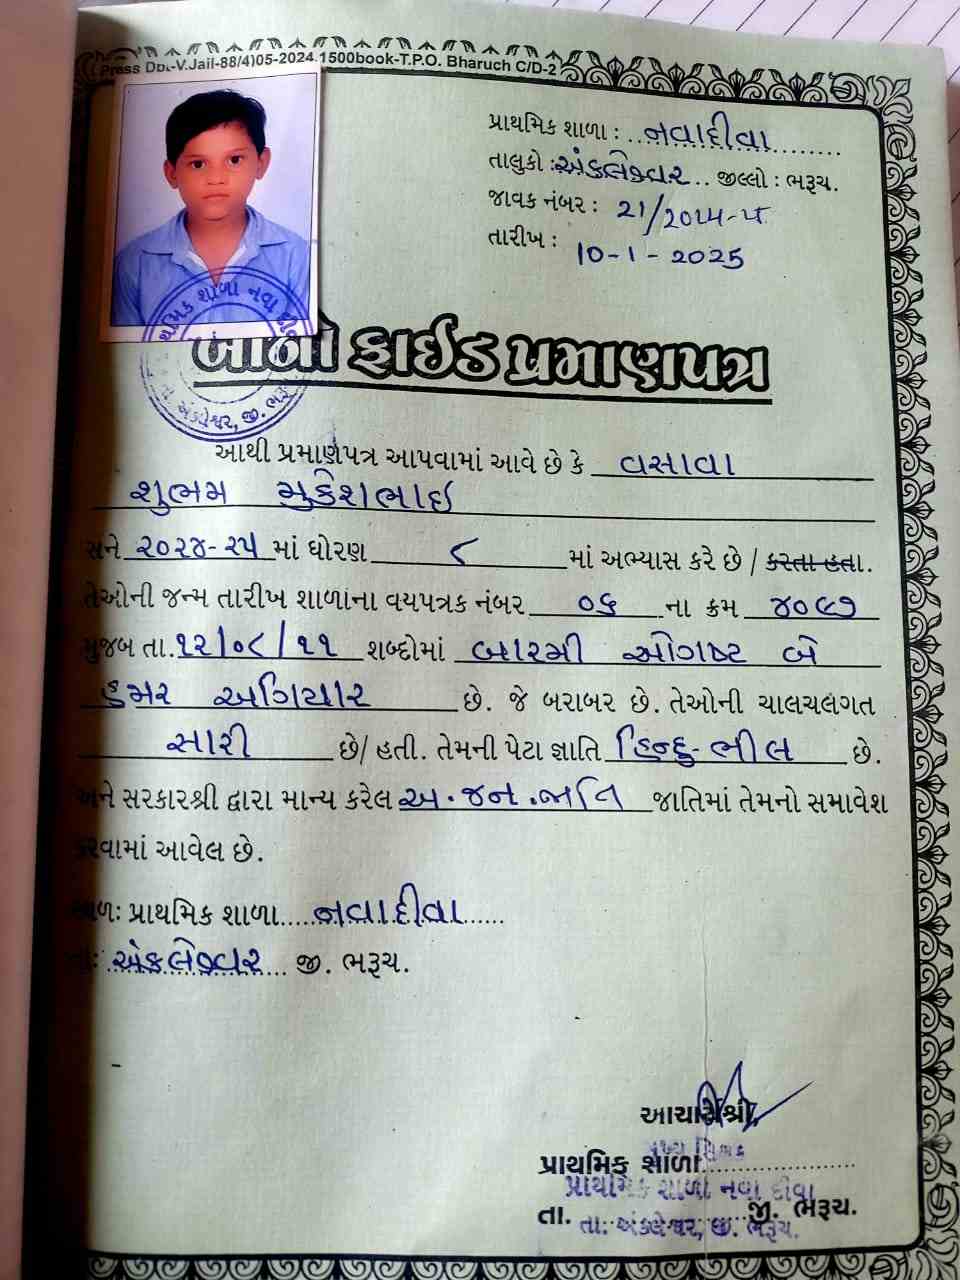 Press Dbt.-V.Jail-88/4)05-2024.1500book-T.P.O. Bharuch C/D-2
પ્રાથમિક શાળા : નવાદીવા
તાલુકો : અંકલેશ્વર જીલ્લો : ભરૂચ.
જાવક નંબર : 21/2024-૨૫
તારીખ : 10-1-2025
પ્રાથમિક શાળા નવા દીવા
તા. અંકલેશ્વર, જી. ભરૂચ
બોનો ફાઈડ પ્રમાણપત્ર
આથી પ્રમાણપત્ર આપવામાં આવે છે કે વસાવા
શુભમ મુકેશભાઇ
સને ૨૦૨૪-૨૫ માં ધોરણ ૮ માં અભ્યાસ કરે છે / કરતા હતા.
તેઓની જન્મ તારીખ શાળાના વયપત્રક નંબર ૦૬ ના ક્રમ ૪૦૯૭
મુજબ તા. ૧૨/૦૮/૧૧ શબ્દોમાં બારમી ઓગષ્ટ બે
હજાર અગિયાર છે. જે બરાબર છે. તેઓની ચાલચલગત
સારી છે/ હતી. તેમની પેટા જ્ઞાતિ હિન્દુ-ભીલ છે.
અને સરકારશ્રી દ્વારા માન્ય કરેલ અ.જન.જાતિ જાતિમાં તેમનો સમાવેશ
કરવામાં આવેલ છે.
સ્થળ: પ્રાથમિક શાળા નવાદીવા
તા: અંકલેશ્વર જી. ભરૂચ.
આચાર્યશ્રી,
મુખ્ય શિક્ષક
પ્રાથમિક શાળા
પ્રાથમિક શાળા નવા દીવા
તા. જી. ભરૂચ.
તા. અંકલેશ્વર, જી. ભરૂચ.